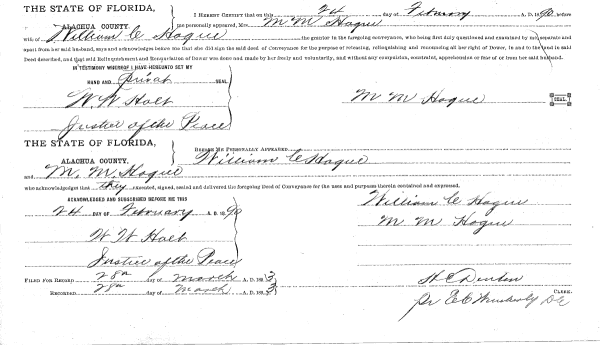 THE STATE OF FLORIDA, I HEREBY CERTIFY that on this 24 day of February A. D. 1890 before
ALACHUA COUNTY. me personally appeared, Mrs. M M Hogue
wife of William C Hogue the grantor in the foregoing conveyance, who being first duly questioned and examined by me separate and
apart from her said husband, says and acknowledges before me that she did sign the said deed of Conveyance for the purpose of releasing, relinquishing and renouncing all her right of Dower, in and to the land in said
Deed described, and that said Relinquishment and Renunciation of Dower was done and made by her freely and voluntarily, and without any compulsion, constraint, apprehension or fear of or from her said husband.
IN TESTIMONY WHEREOF I HAVE HEREUNTO SET MY
HAND AND privat SEAL
W. W Holt M M Hogue SEAL.
Justice of the Peace
THE STATE OF FLORIDA, BEFORE ME PERSONALLY APPEARED
ALACHUA COUNTY, William C Hogue
and M. M. Hogue
who acknowledges that they executed, signed, sealed and delivered the foregoing deed of Conveyance for the uses and purposes therein contained and expressed.
ACKNOWLEDGED AND SUBSCRIBED BEFORE ME THIS William C Hogue
24 DAY OF February A. D. 1890 M M Hogue
W W Holt
Justice of the Peace
FILED FOR RECORD 28th day of March A. D. 1893 H C Denton
RECORDED 28th day of March A. D. 1893 CLERK.
pr E C DC